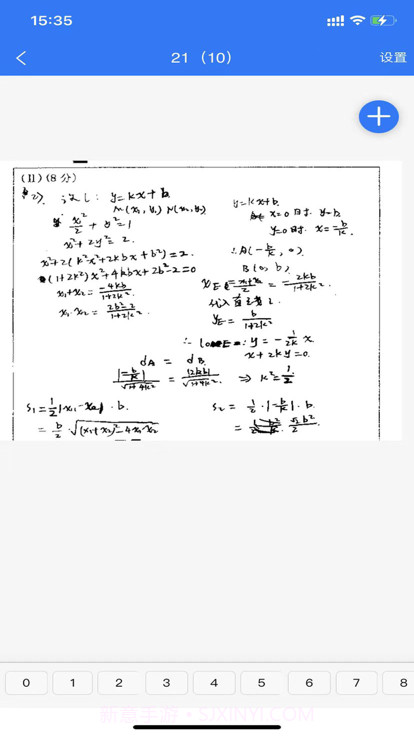 15:35
21（10） 设置
(II)(8分)
(2). 设 l: y=kx+b
M(x₁, y₁) N(x₂, y₂)
x²/2 + y²=1
x²+2y²=2.
x²+2(k²x²+2kbx+b²)=2.
(1+2k²)x²+4kbx+2b²-2=0
x₁+x₂= -4kb/1+2k².
x₁·x₂= 2b²-2/1+2k²
y=kx+b.
x=0时 y=b.
y=0时 x=-b/k.
∴A(-b/k, 0)
B(0, b)
x_E = x₁+x₂/2 = -2kb/1+2k².
代入直线 l.
y_E= b/1+2k²
∴ l_OE: y=-1/2k x
x+2ky=0.
d_A = d_B.
|-b/k|/√1+4k² = |2kb|/√1+4k² ⇒ k²=1/2
S₁=1/2|x₁-x₂|·b.
= b/2·√(x₁+x₂)²-4x₁x₂
S₂= 1/2·|-b/k|·b.
= √2b²/2
0 1 2 3 4 5 6 7 8
新趣手游·SJXINYI.COM